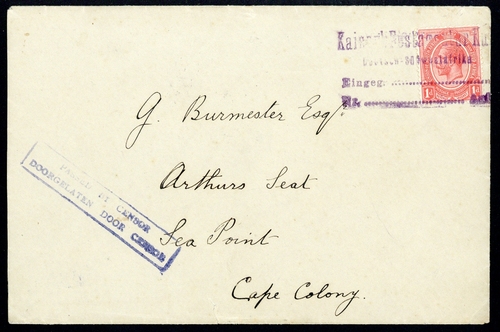 Deutsch-Südwestafrika
Eingeg.
1d
G. Burmester Esqr.
Arthurs Seat
Sea Point
Cape Colony.
PASSED BY CENSOR
DOORGELATEN DOOR CENSOR